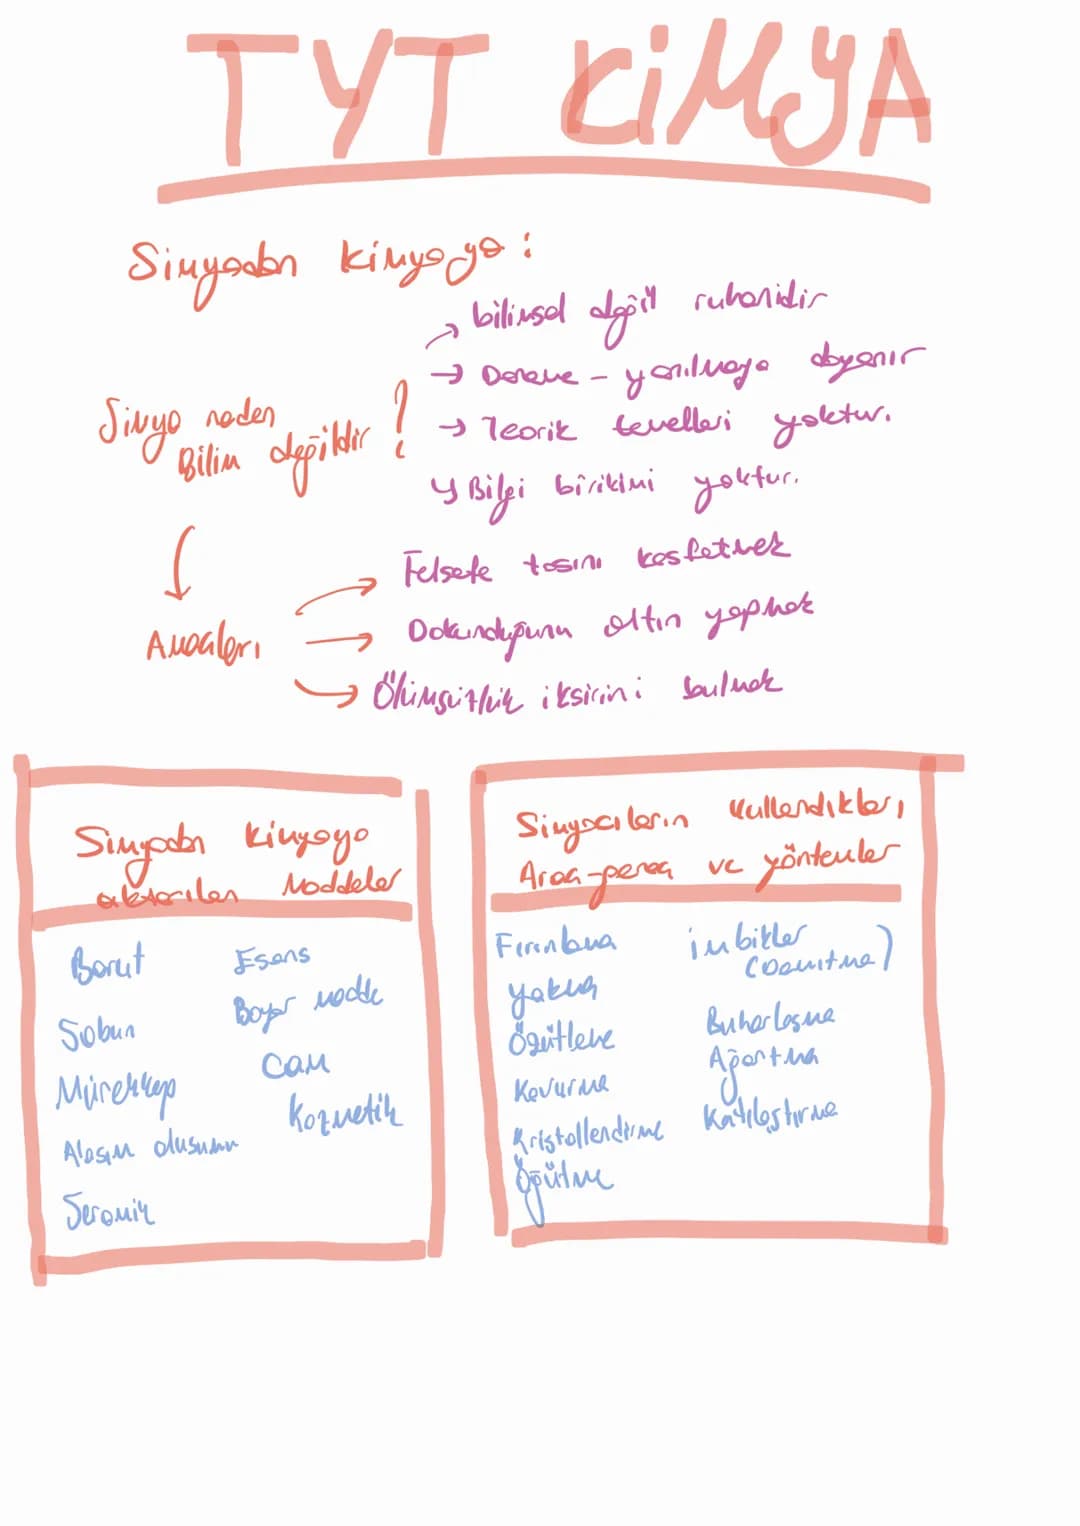 TYT KİMYA
Simyadan kimyaya :
Simya neden
Bilim değildir ?
bilimsel değil ruhanidir
Deneme - yanılmaya dayanır
Teorik temelleri yoktur.
Bilgi birikimi yoktur.
Amaçları
Felsefe taşını keşfetmek
Dokunduğunu altın yapmak
Ölümsüzlük iksirini bulmak
Simyadan kimyaya
aktarılan Maddeler
Barut
Esans
Sabun
Boyar madde
Mürekkep
Cam
Alaşım oluşumu
Kozmetik
Seramik
Simyacıların kullandıkları
Araç-gereç ve yöntemler
Fırınlama
imbikler
(Damıtma)
Yakma
Özütleme
Buharlaşma
Kavurma
Ağartma
Kristallendirme
Katılaştırma
Öğütme